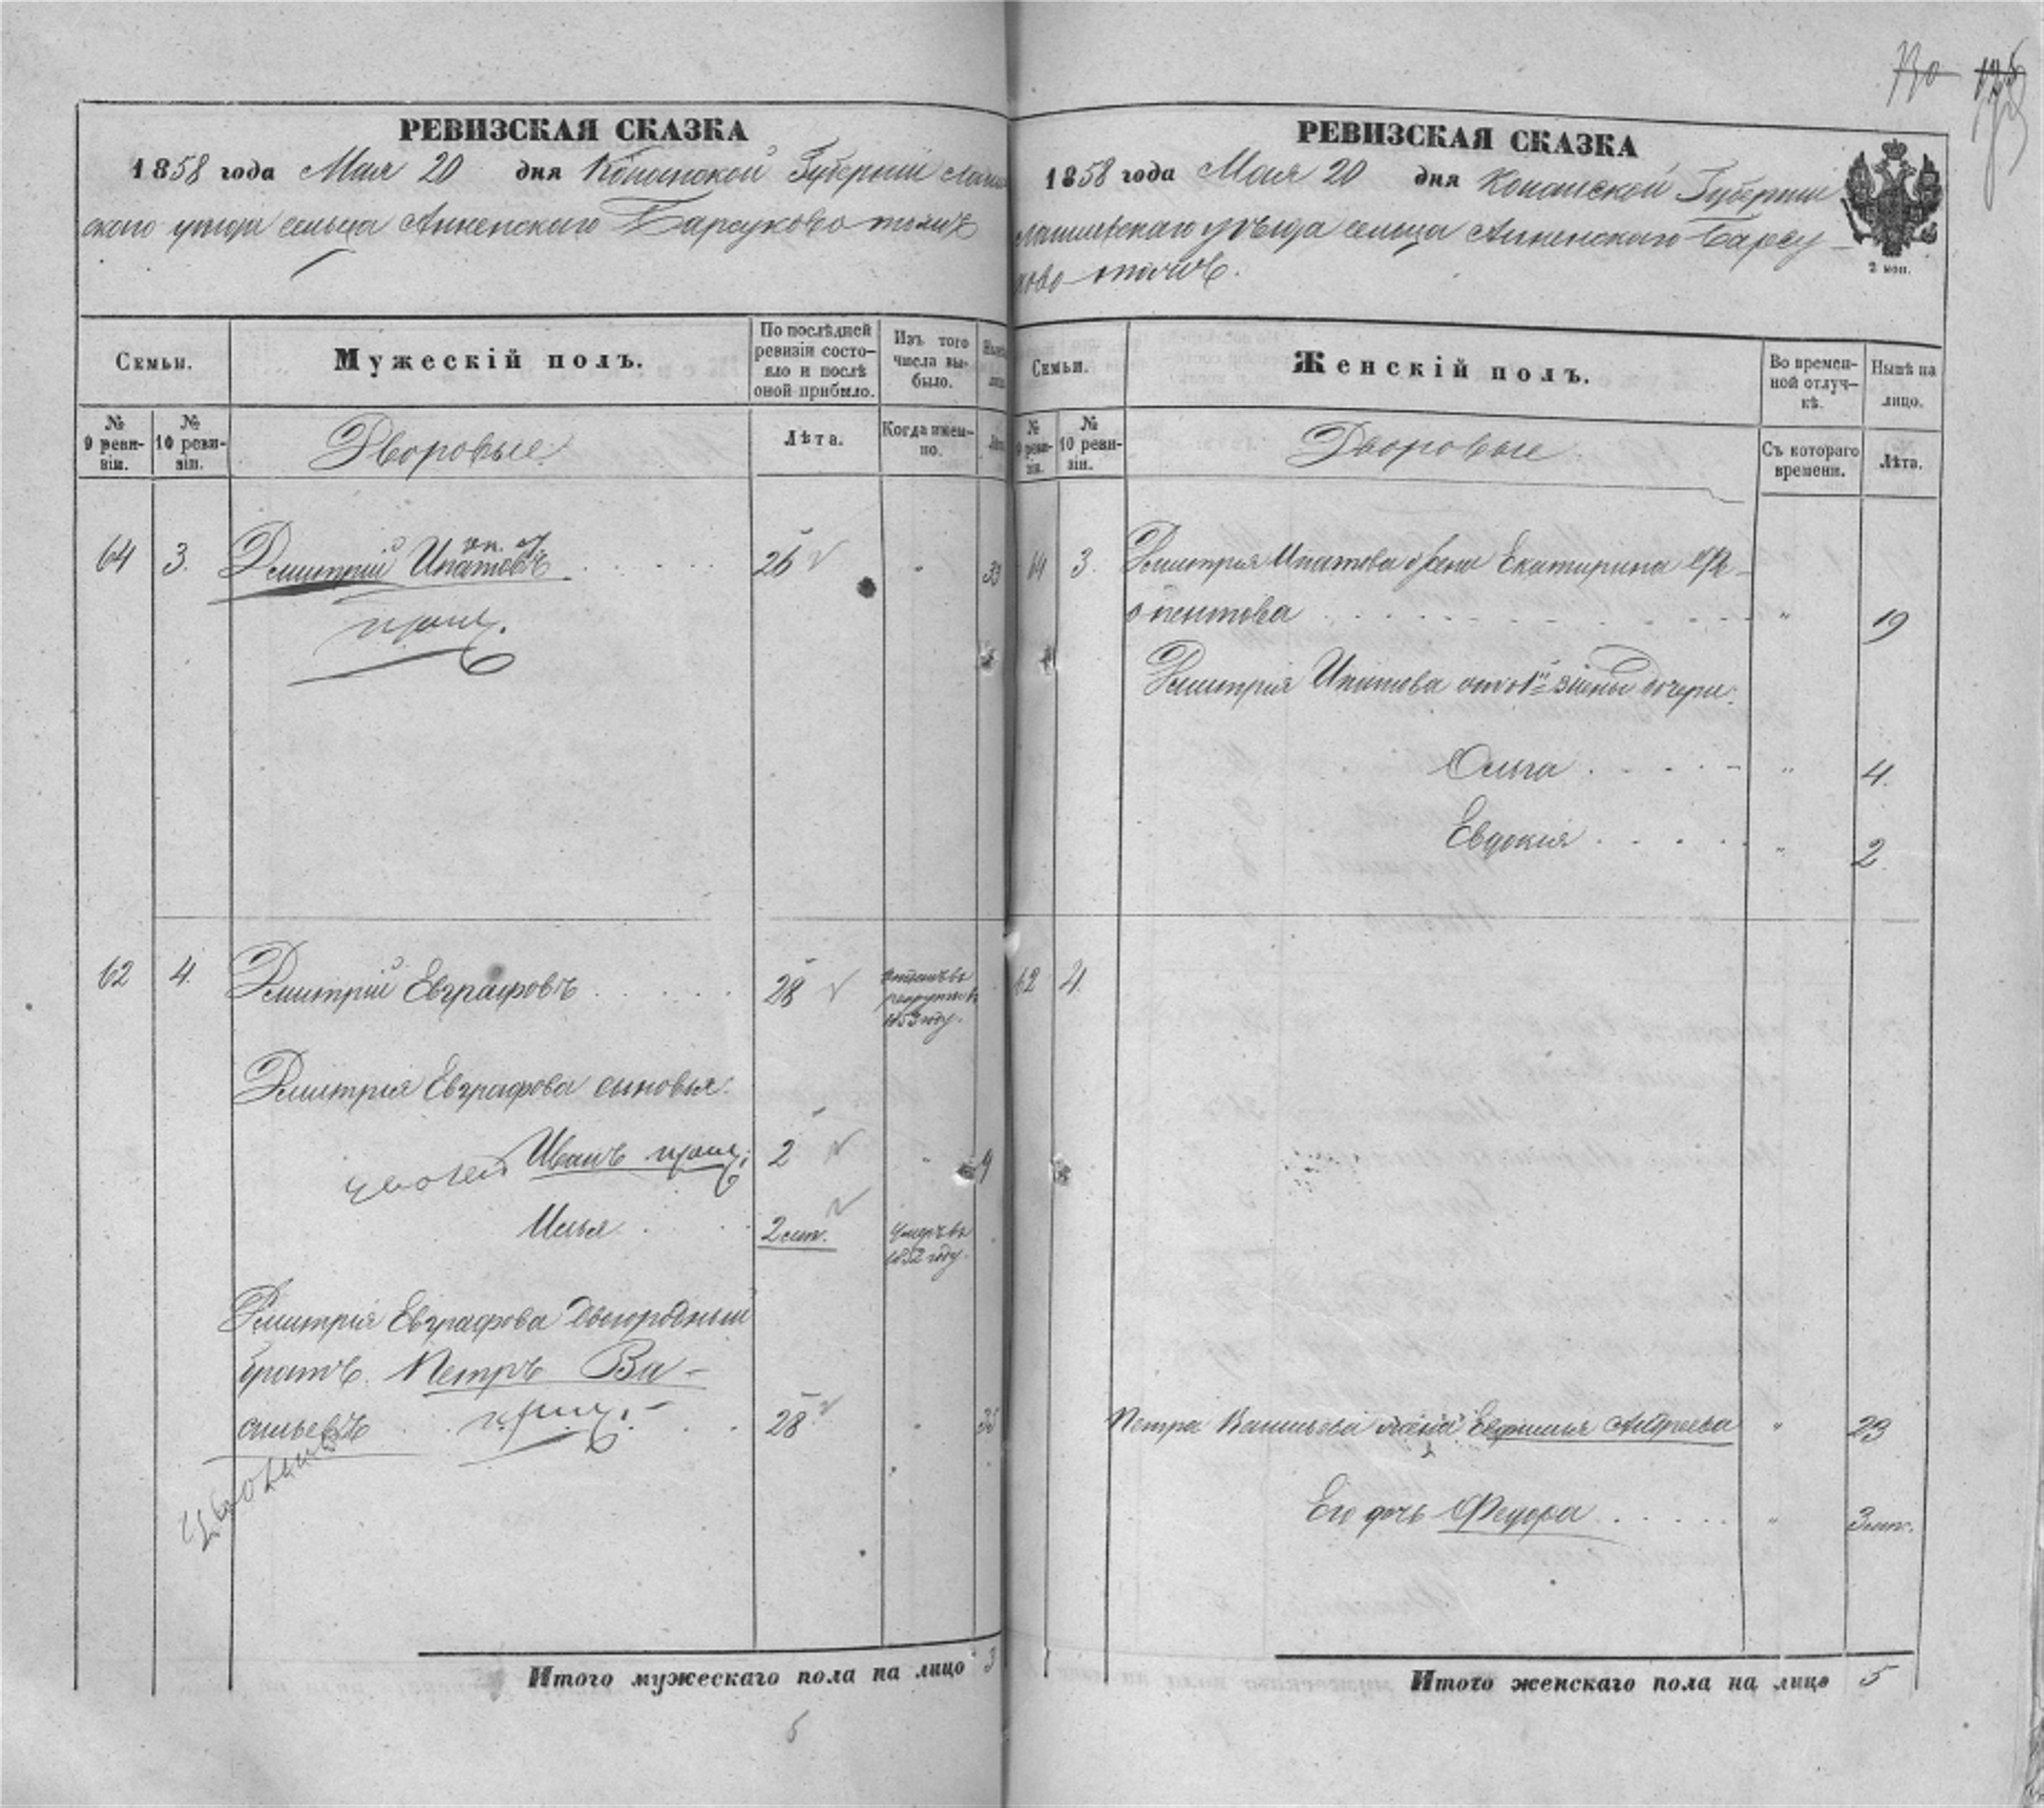 РЕВИЗСКАЯ СКАЗКА
1858 года Мая 20 дня Казанской Губернии Лаиш
скаго уезда сельца Анненскаго Барсуково тожъ
Семьи.
Мужескій полъ.
По послѣдней ревизіи состо-
яло и послѣ
оной прибыло.
Изъ того
числа вы-
было.
№
9 реви-
зіи.
№
10 реви-
зіи.
Дворовые
Лѣта.
Когда имен-
но.
64 3. Дмитрій Ипатовъ 26
62 4. Дмитрій Евграфовъ 28
1853 году.
Дмитрія Евграфова сыновья:
Иванъ 2 9
Илья 2 мѣс.
умеръ въ
1852 году.
Дмитрія Евграфова двоюродный
братъ Петръ Ва-
сильевъ 28
Итого мужескаго пола на лицо 3
6
РЕВИЗСКАЯ СКАЗКА
1858 года Мая 20 дня Казанской Губерніи
Лаишевскаго уѣзда сельца Анненскаго Барсу-
ково тожъ.
2 коп.
Семьи.
Женскій полъ.
Во времен-
ной отлуч-
кѣ.
Нынѣ на
лицо.
№
9 реви-
зіи.
№
10 реви-
зіи.
Дворовые
Съ котораго
времени.
Лѣта.
64 3. Дмитрія Ипатова жена Екатирина
19
Дмитрія Ипатова отъ 1й жены дочери:
Ольга 4.
Евдокия 2
62 4.
Петра Васильева жена Евфимия Андреева 23
Его дочь Федора 3 мѣс.
Итого женскаго пола на лицо 5